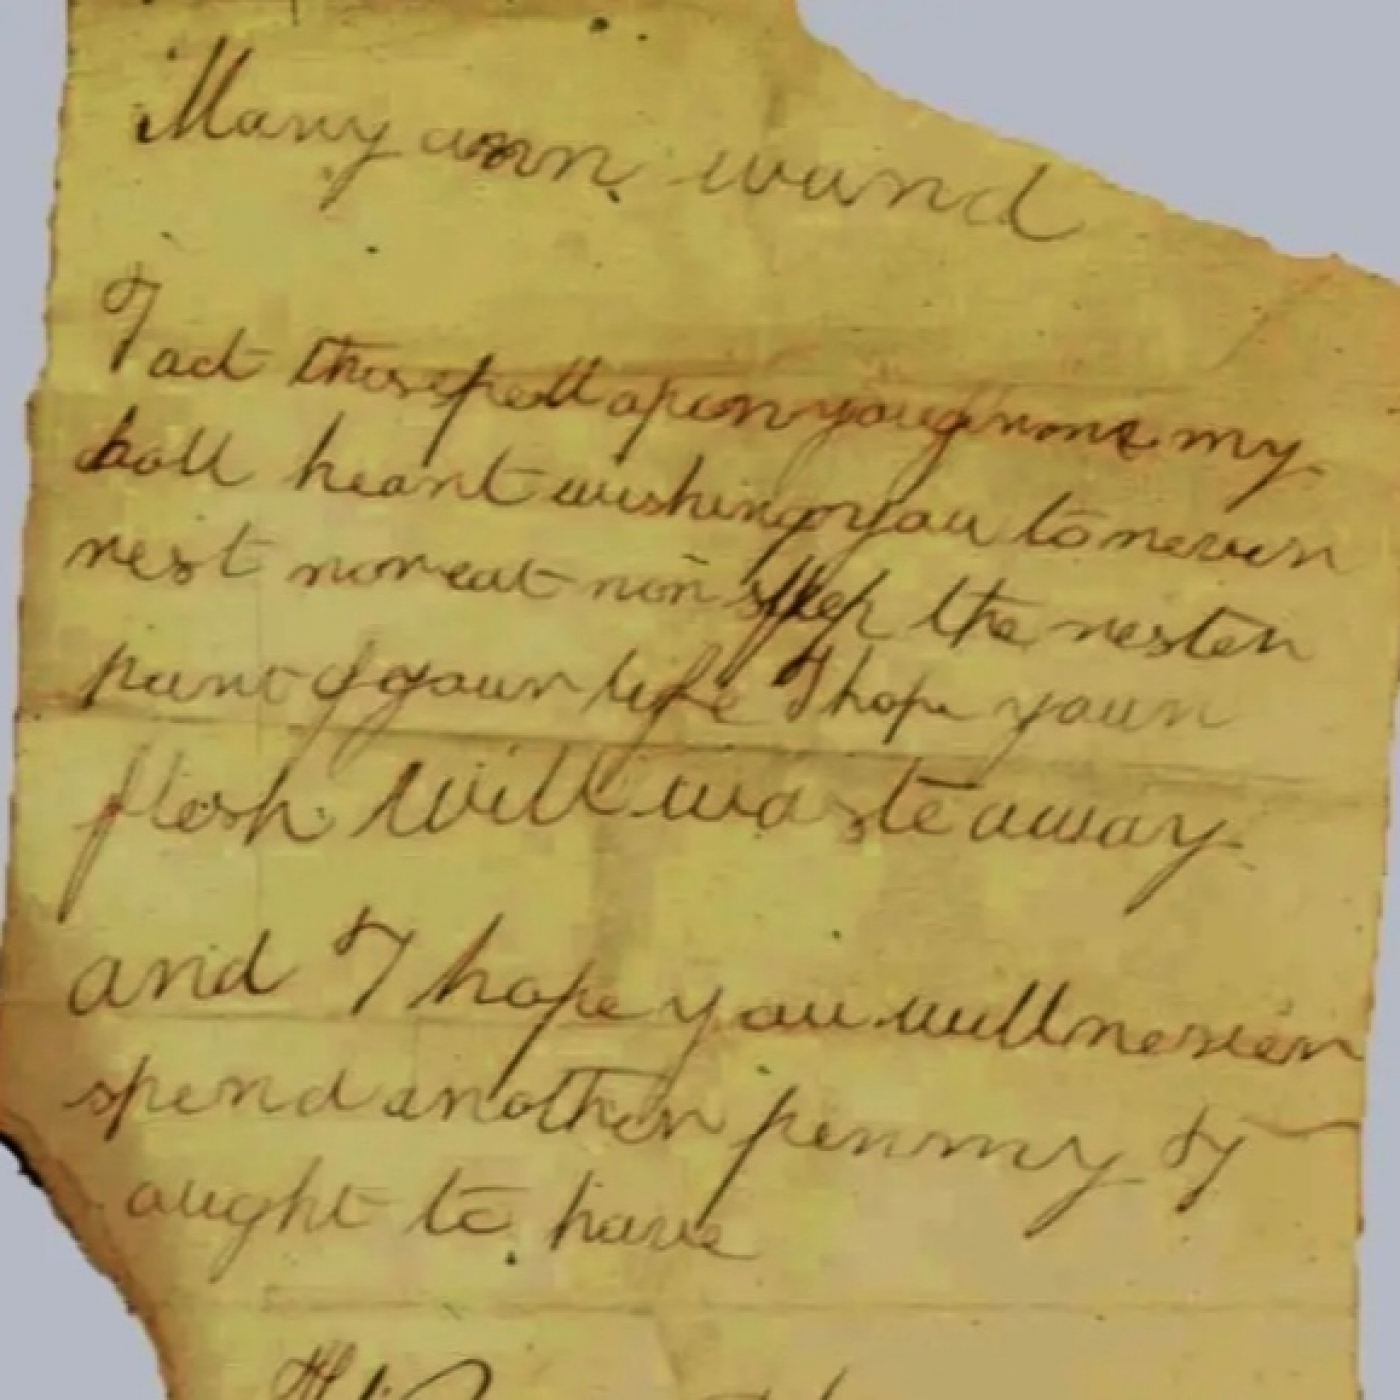 Mary ann ward
I act this spell upon you from my
holl heart wishing you to never
rest nor eat nor sleep the resten
part of your life I hope your
flesh will waste away
and I hope you will never
spend another penny I
ought to have